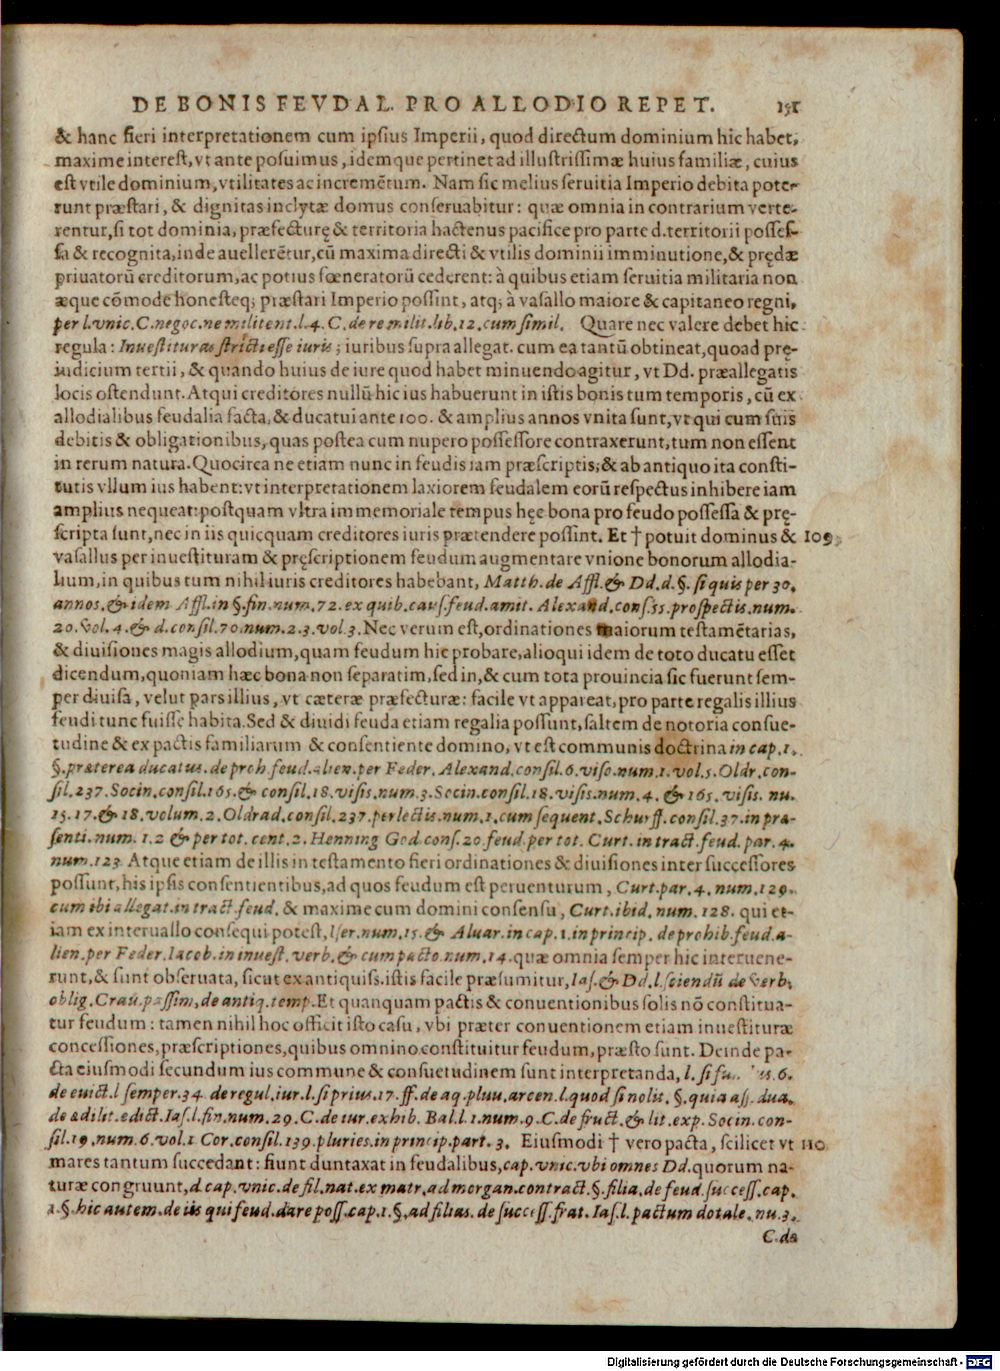 DE BONIS FEVDAL. PRO ALLODIO REPET. 151
& hanc fieri interpretationem cum ipsius Imperii, quod directum dominium hic habet,
maxime interest, vt ante posuimus, idemque pertinet ad illustrissimæ huius familiæ, cuius
est vtile dominium, vtilitates ac incremētum. Nam sic melius seruitia Imperio debita pote-
runt præstari, & dignitas inclytæ domus conseruabitur: quæ omnia in contrarium verte-
rentur, si tot dominia, præfecturę & territoria hactenus pacifice pro parte d. territorii posses-
sa & recognita, inde auellerētur, cū maxima directi & vtilis dominii imminutione, & prędæ
priuatorū creditorum, ac potius fœneratorū cederent: à quibus etiam seruitia militaria non
æque cōmode honesteq; præstari Imperio possint, atq; à vasallo maiore & capitaneo regni,
per l. vnic. C. negoc. ne militent. l. 4. C. de re milit. lib. 12. cum simil. Quare nec valere debet hic
regula: Inuestituras stricti esse iuris; iuribus supra allegat. cum ea tantū obtineat, quoad prę-
iudicium tertii, & quando huius de iure quod habet minuendo agitur, vt Dd. præallegatis
locis ostendunt. Atqui creditores nullū hic ius habuerunt in istis bonis tum temporis, cū ex
allodialibus feudalia facta, & ducatui ante 100. & amplius annos vnita sunt, vt qui cum suis
debitis & obligationibus, quas postea cum nupero possessore contraxerunt, tum non essent
in rerum natura. Quocirca ne etiam nunc in feudis iam præscriptis, & ab antiquo ita consti-
tutis vllum ius habent: vt interpretationem laxiorem feudalem eorū respectus inhibere iam
amplius nequeat: postquam vltra immemoriale tempus hęc bona pro feudo possessa & prę-
scripta sunt, nec in iis quicquam creditores iuris prætendere possint. Et † potuit dominus & 109
vasallus per inuestituram & pręscriptionem feudum augmentare vnione bonorum allodia-
lium, in quibus tum nihil iuris creditores habebant, Matth. de Affl. & Dd. d. §. si quis per 30.
annos. & idem Affl. in §. fin. num. 72. ex quib. caus. feud. amit. Alexand. cons. 55. prospectis. num.
20. vol. 4. & d. consil. 70. num. 2. 3. vol 3. Nec verum est, ordinationes maiorum testamētarias,
& diuisiones magis allodium, quam feudum hic probare, alioqui idem de toto ducatu esset
dicendum, quoniam hæc bona non separatim, sed in, & cum tota prouincia sic fuerunt sem-
per diuisa, velut pars illius, vt cæteræ præfecturæ: facile vt appareat, pro parte regalis illius
feudi tunc fuisse habita. Sed & diuidi feuda etiam regalia possunt, saltem de notoria consue-
tudine & ex pactis familiarum & consentiente domino, vt est communis doctrina in cap. 1.
§. præterea ducatus. de proh. feud. alien. per Feder. Alexand. consil. 6. viso. num. 1. vol. 5. Oldr. con-
sil. 237. Socin. consil. 165. & consil. 18. visis. num. 3. Socin. consil. 18. visis. num. 4. & 165. visis. nu.
15. 17. & 18. volum. 2. Oldrad. consil. 237. per lectis. num. 1. cum sequent. Schurff. consil. 37. in præ-
senti. num. 1. 2 & per tot. cent. 2. Henning God. cons. 20 feud. per tot. Curt. in tract. feud. par. 4.
num. 123 Atque etiam de illis in testamento fieri ordinationes & diuisiones inter successores
possunt, his ipsis consentientibus, ad quos feudum est peruenturum, Curt. par. 4. num. 129.
cum ibi allegat. in tract. feud. & maxime cum domini consensu, Curt. ibid. num. 128. qui et-
iam ex interuallo consequi potest, Iser. num. 15. & Aluar. in cap. 1. in princip. de prohib. feud. a-
lien. per Feder. Iacob. in inuest. verb. & cum pacto. num. 14. quæ omnia semper hic interuene-
runt, & sunt obseruata, sicut ex antiquiss. istis facile præsumitur, Ias. & Dd. l. sciendū de verb.
oblig. Crau. passim, de antiq. temp. Et quanquam pactis & conuentionibus solis nō constitua-
tur feudum: tamen nihil hoc officit isto casu, vbi præter conuentionem etiam inuestituræ
concessiones, præscriptiones, quibus omnino constituitur feudum, præsto sunt. Deinde pa-
cta eiusmodi secundum ius commune & consuetudinem sunt interpretanda, l. si 6.
de euict. l semper. 34. de regul. iur. l. si prius. 17. ff. de aq. pluu. arcen. l. quod si nolit. §. quia ass. dua.
de ædilit. edict. Ias. l. fin. num. 29. C. de iur. exhib. Bal. l. 1. num. 9. C. de fruct. & lit. exp. Socin. con-
sil. 19. num. 6. vol. 1 Cor. consil. 139. pluries. in princip. part. 3. Eiusmodi † vero pacta, scilicet vt 110
mares tantum succedant: fiunt duntaxat in feudalibus, cap. vnic. vbi omnes Dd. quorum na-
turæ congruunt, d. cap. vnic. de fil. nat. ex matr. ad morgan. contract. §. filia. de feud. success. cap.
1. §. hic autem. de iis qui feud. dare poss. cap. 1. §. ad filias. de success. frat. Ias. l. pactum dotale. nu. 3.
C. de
Digitalisierung gefördert durch die Deutsche Forschungsgemeinschaft - DFG